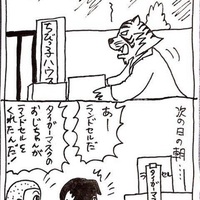 ちびっ子ハウス
次の日の朝……
タイガーマスク
あー
ランドセルだ
タイガーマスクの
おじちゃんが
ランドセルを
くれたんだ!